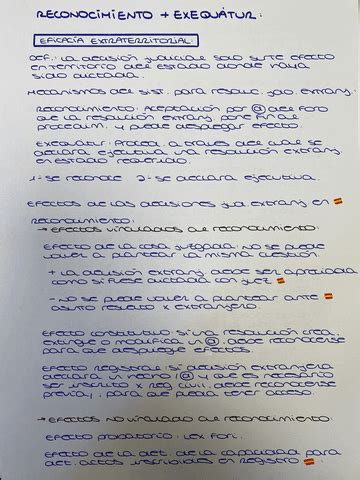 RECONOCIMIENTO + EXEQUÁTUR:
EFICACIA EXTRATERRITORIAL:
DEF: La decisión judicial solo surte efecto
en territorio del estado donde haya
sido dictada.
Mecanismos del sist. para resoluc. jud. extranj.
Reconocimiento: Aceptación por @ del foro
que la resolución extranj. pone fin al
procedim. y puede desplegar efecto.
Exequátur: Proced. a través del cual se
declara ejecutiva una resolución extranj.
en estado requerido.
1- se reconoce 2- se declara ejecutiva.
Efectos de las decisiones jud extranj en 🇪🇸
Reconocimiento:
→ Efectos vinculados al reconocimiento:
Efecto de la cosa juzgada: no se puede
volver a plantear la misma cuestión.
+ La decisión extranj debe ser apreciada
como si fuese dictada con juez 🇪🇸
- No se puede volver a plantear ante 🇪🇸
asunto resuelto x extranjero.
Efecto constitutivo: si una resolución crea,
extingue o modifica un @, debe reconocerse
para que despliegue efectos.
Efecto registral: si decisión extranjera
declara un hecho (@) y que es necesario
ser inscrito x Reg civil, debe reconocerse
previa, para que pueda tener acceso.
→ Efectos no vinculado al reconocimiento:
Efecto probatorio: Lex fori.
Efecto de la alt. de la capacidad para
act. actos inscribibles en registro 🇪🇸